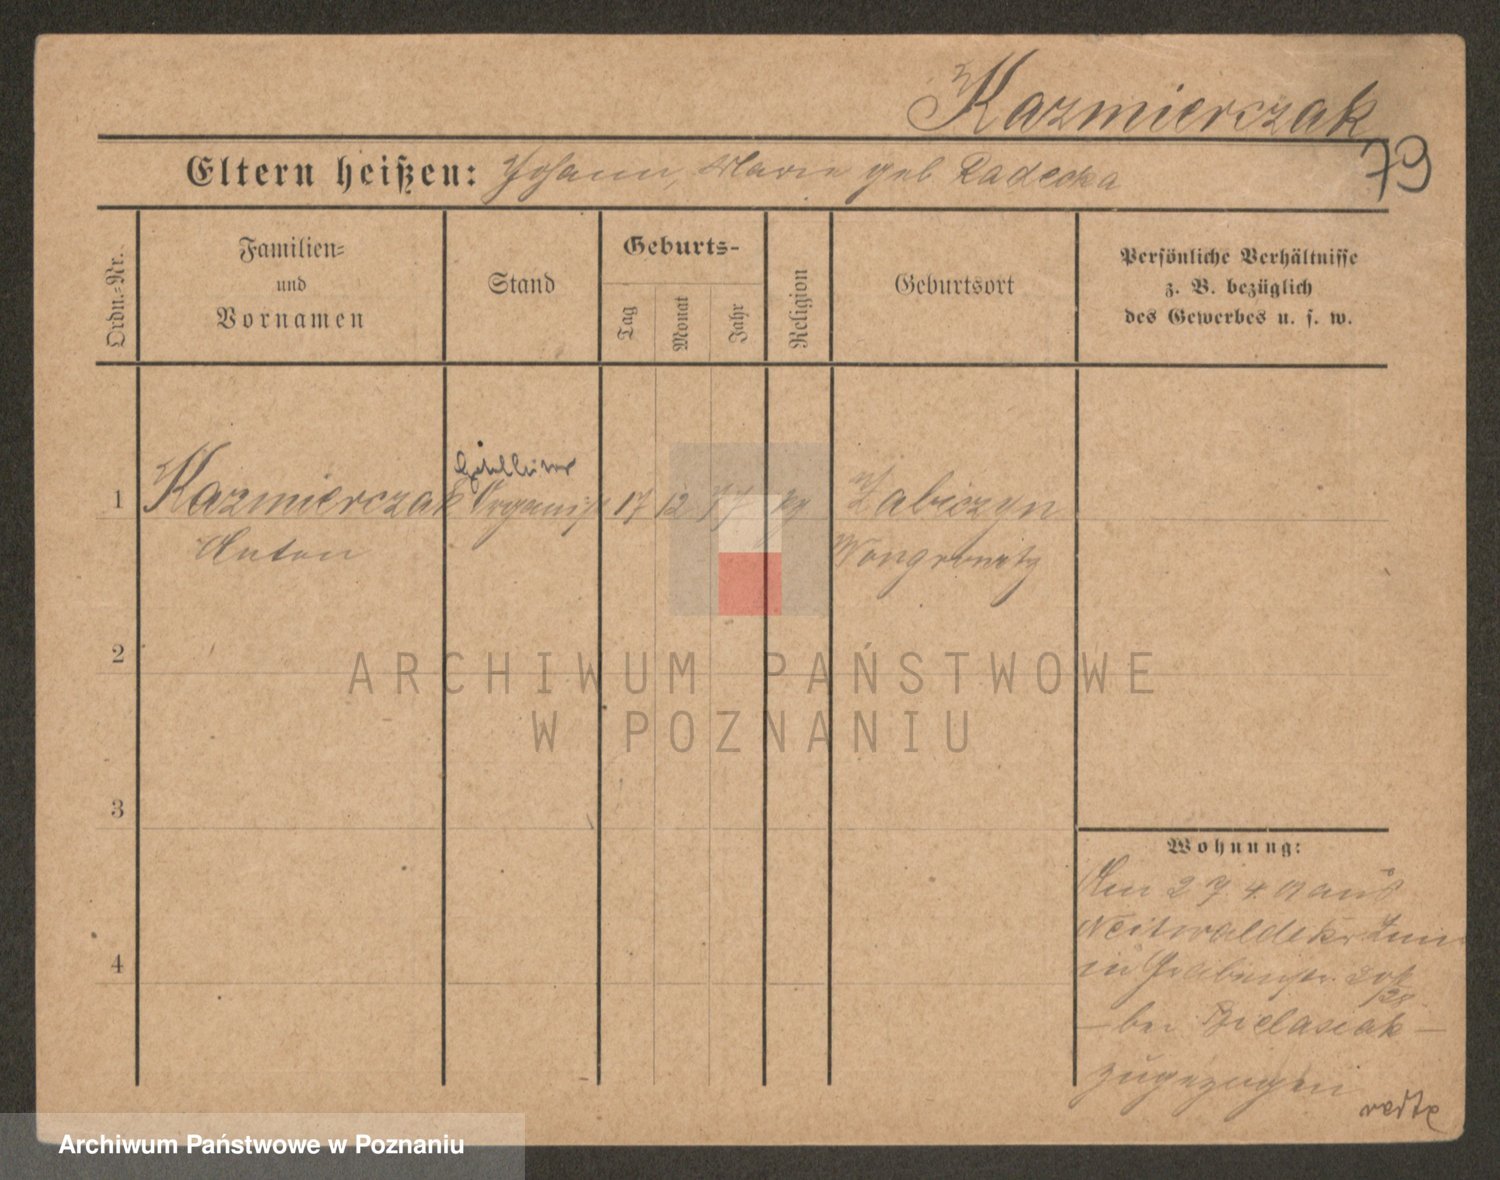 Kazmierczak
79
Eltern heißen: Johann, Marie geb Radecka
Ordn.=Nr.
Familien=
und
Vornamen
Stand
Geburts-
Tag
Monat
Jahr
Religion
Geburtsort
Persönliche Verhältnisse
z. B. bezüglich
des Gewerbes u. s. w.
1 Kazmierczak Organist 17 12 77 kg Zabiczyn
Anton Wongrowitz
2
3
4
Wohnung:
Am 27.4. aus
in Grabenstr.
– bei Bielasiak –
zugezogen
ARCHIWUM PAŃSTWOWE
W POZNANIU
Archiwum Państwowe w Poznaniu